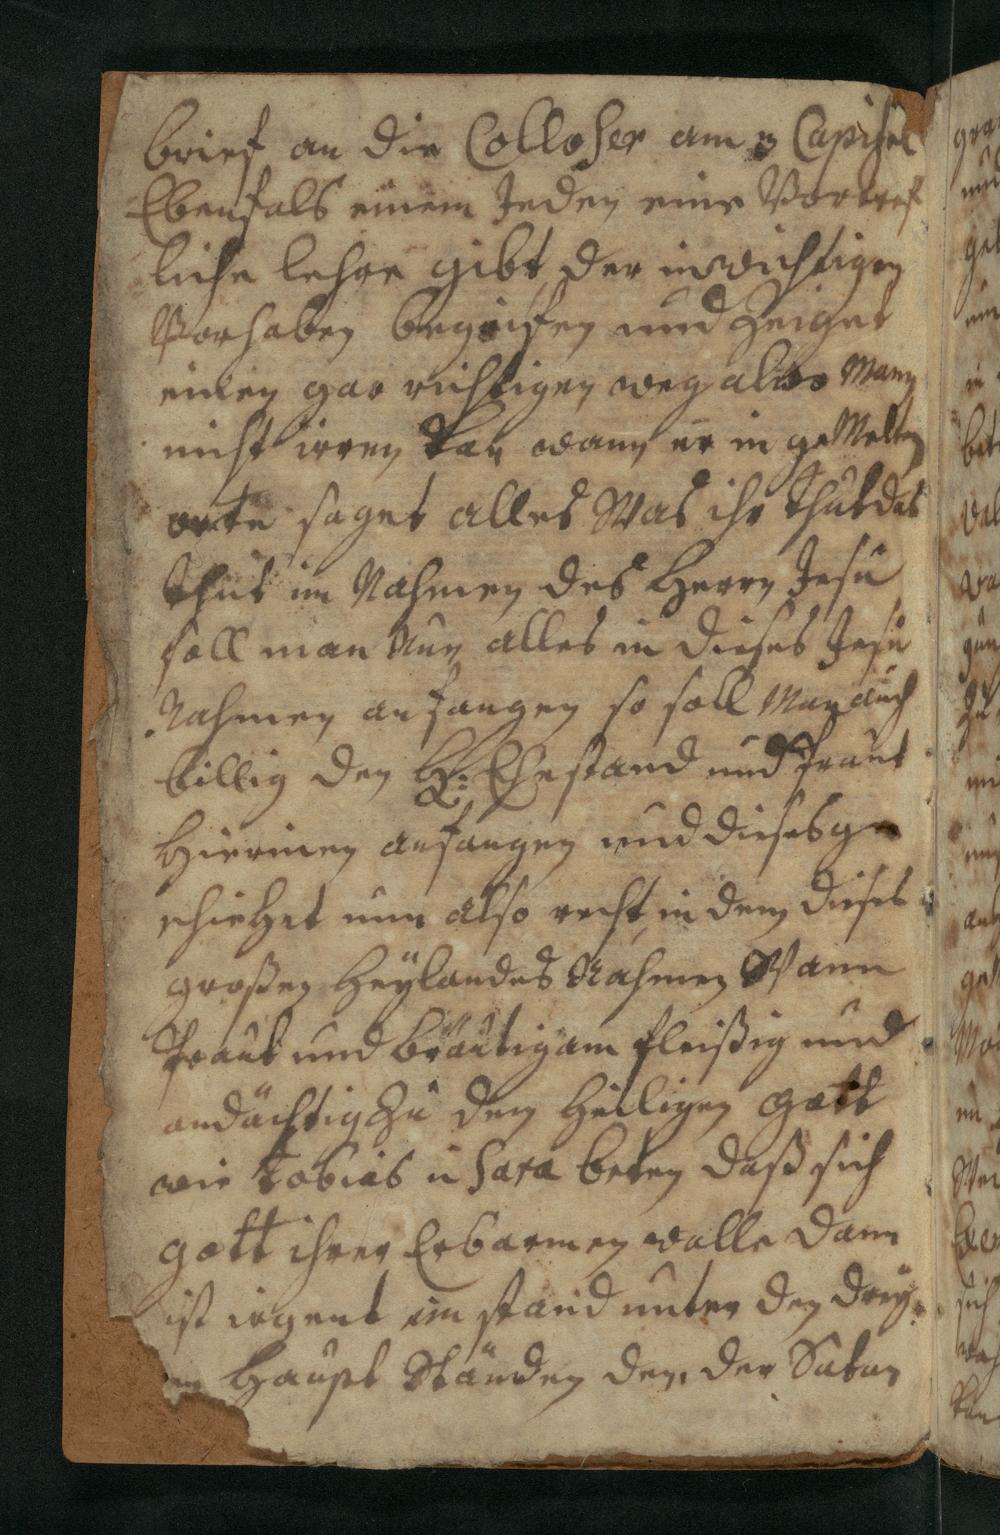 brief an die Colloser am 3 Capitel
Ebenfals einem Jeden eine Vortref
liche lehre gibt der in wichtigen
Vorhaben begriffen und Zeiget
einen gar richtigen weg also Man
nicht irren kan wann er in gemelten
orte saget alles Was ihr thut das
thut im Nahmen des Herrn Jesu
soll man Nun alles in dieses Jesu
Nahmen anfangen so soll Man auch
billig den H: Ehestand und Traut
Hierinen anfangen und dieses ge
schiehet nun also recht in dem dieses
großen Heÿlandes Nahmen Wann
Braut und Bräutigam fleißig und
andächtig zu dem Heiligen Gott
wie Tobias u Sara beten daß sich
Gott ihrer Erbarmen wolle dann
ist irgent ein stand unter den dreÿ
en Haupt Ständen den der Satan